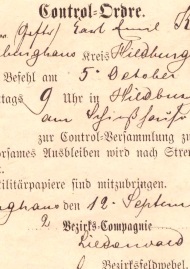 Control-Ordre.
Earl Emil
Kreis Hildburg
Befehl am 5. October
tags 9 Uhr in Hildbur
am
zur Control-Versammlung zu
orsames Ausbleiben wird nach Stren
ilitärpapiere sind mitzubringen.
nghaus den 12. Septem
2 Bezirks-Compagnie
Bezirksfeldwebel.